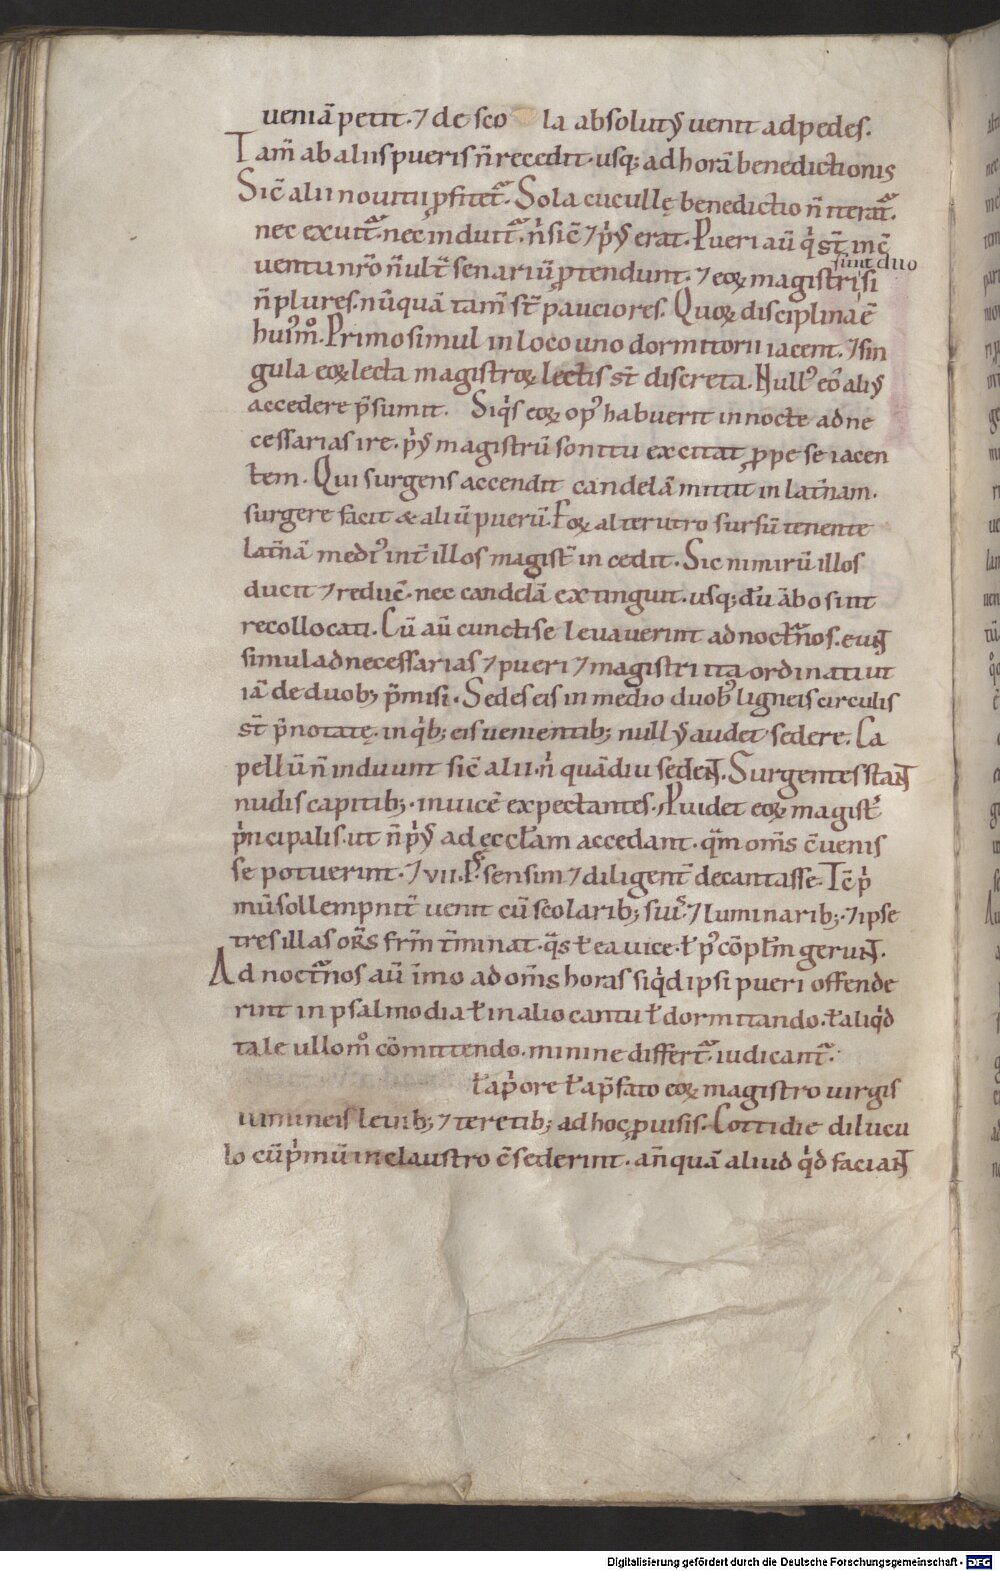 ueniā petit · ⁊ de sco la absolutꝰ uenit ad pedes.
Tam̄ ab aliis pueris n̄ recedit · usq; ad horā benedictionis
Sic̄ alii nouitii ꝓfitet᷑. Sola cucullę benedictio n̄ iterat᷑.
nec exuit᷑ · nec induit᷑ · n̄ sic̄ ⁊ p̓ꝰ erat. Pueri aū q̓ st̄ in c̄
sunt duo
uentu nr̄o n̄ ult̄ senariū ꝓtendunt · ⁊ eoꝝ magistri si
n̄ plures · nūquā tam̄ st̄ pauciores. Quoꝝ disciplina ē
hui᾽mo᷒. Primo simul in loco uno dormitorii iacent. ⁊ sin
gula eoꝝ lecta magistroꝝ lectis st̄ discreta. Null᾽ eō aliꝰ
accedere p̄sumit. Siq̓s eoꝝ op᾽ habuerit in nocte ad ne
cessarias ire · p̓ꝰ magistrū sonitu excitat ꝓpe se iacen
tem. Qui surgens accendit candelā mittit in lat̄nam.
surgere facit & aliū puerū. Eoꝝ alterutro sursū tenente
lat̄nā medi᾽ int̄ illos magist̄ incedit. Sic nimirū illos
ducit ⁊ reduc̄ · nec candelā extinguit · usq; dū ābo sint
recollocati. Cū aū cuncti se leuauerint ad noct᷑nos · eunt
simul ad necessarias ⁊ pueri ⁊ magistri ita ordinati ut
iā de duob; p̄misi · Sedes eis in medio duob᾽ ligneis circulis
st̄ p̄notatę · in q̓b; eis uenientib; nullꝰ audet sedere. Ca
pellū n̄ induunt sic̄ alii · n̓ quādiu sedent. Surgentes stant
nudis capitib; · inuicē expectantes · Puidet eoꝝ magist̓
p̓ncipalis · ut n̄ p̓ꝰ ad ęccłam accedant · qm̄ om̄s c̄uenis
se potuerint · ⁊ vii · Ps̄ sensim ⁊ diligent̄ decantasse · Tc̄ p̓
mū sollempnit̄ uenit cū scolarib; suis ⁊ luminarib; · ⁊ ipse
tres illas or̄s frm̄ t̄minat · q̄s ł ea uice ł p᾽ cōpłm gerunt.
Ad noct᷑nos aū īmo ad om̄s horas siq̓d ipsi pueri offende
rint in psalmodia ł in alio cantu ł dormitando · ł aliq̓d
tale ullom᷒ cōmittendo · minine differt᷑ · iudicant᷑ ·
ł a p̓ore ł a p̄fato eoꝝ magistro uirgis
uimineis leuib; ⁊ teretib; ad hoc ꝓuisis. Cottidie dilucu
lo cū p̓mū in claustro c̄sederint · an̄quā aliud q̓d faciant
Digitalisierung gefördert durch die Deutsche Forschungsgemeinschaft · DFG